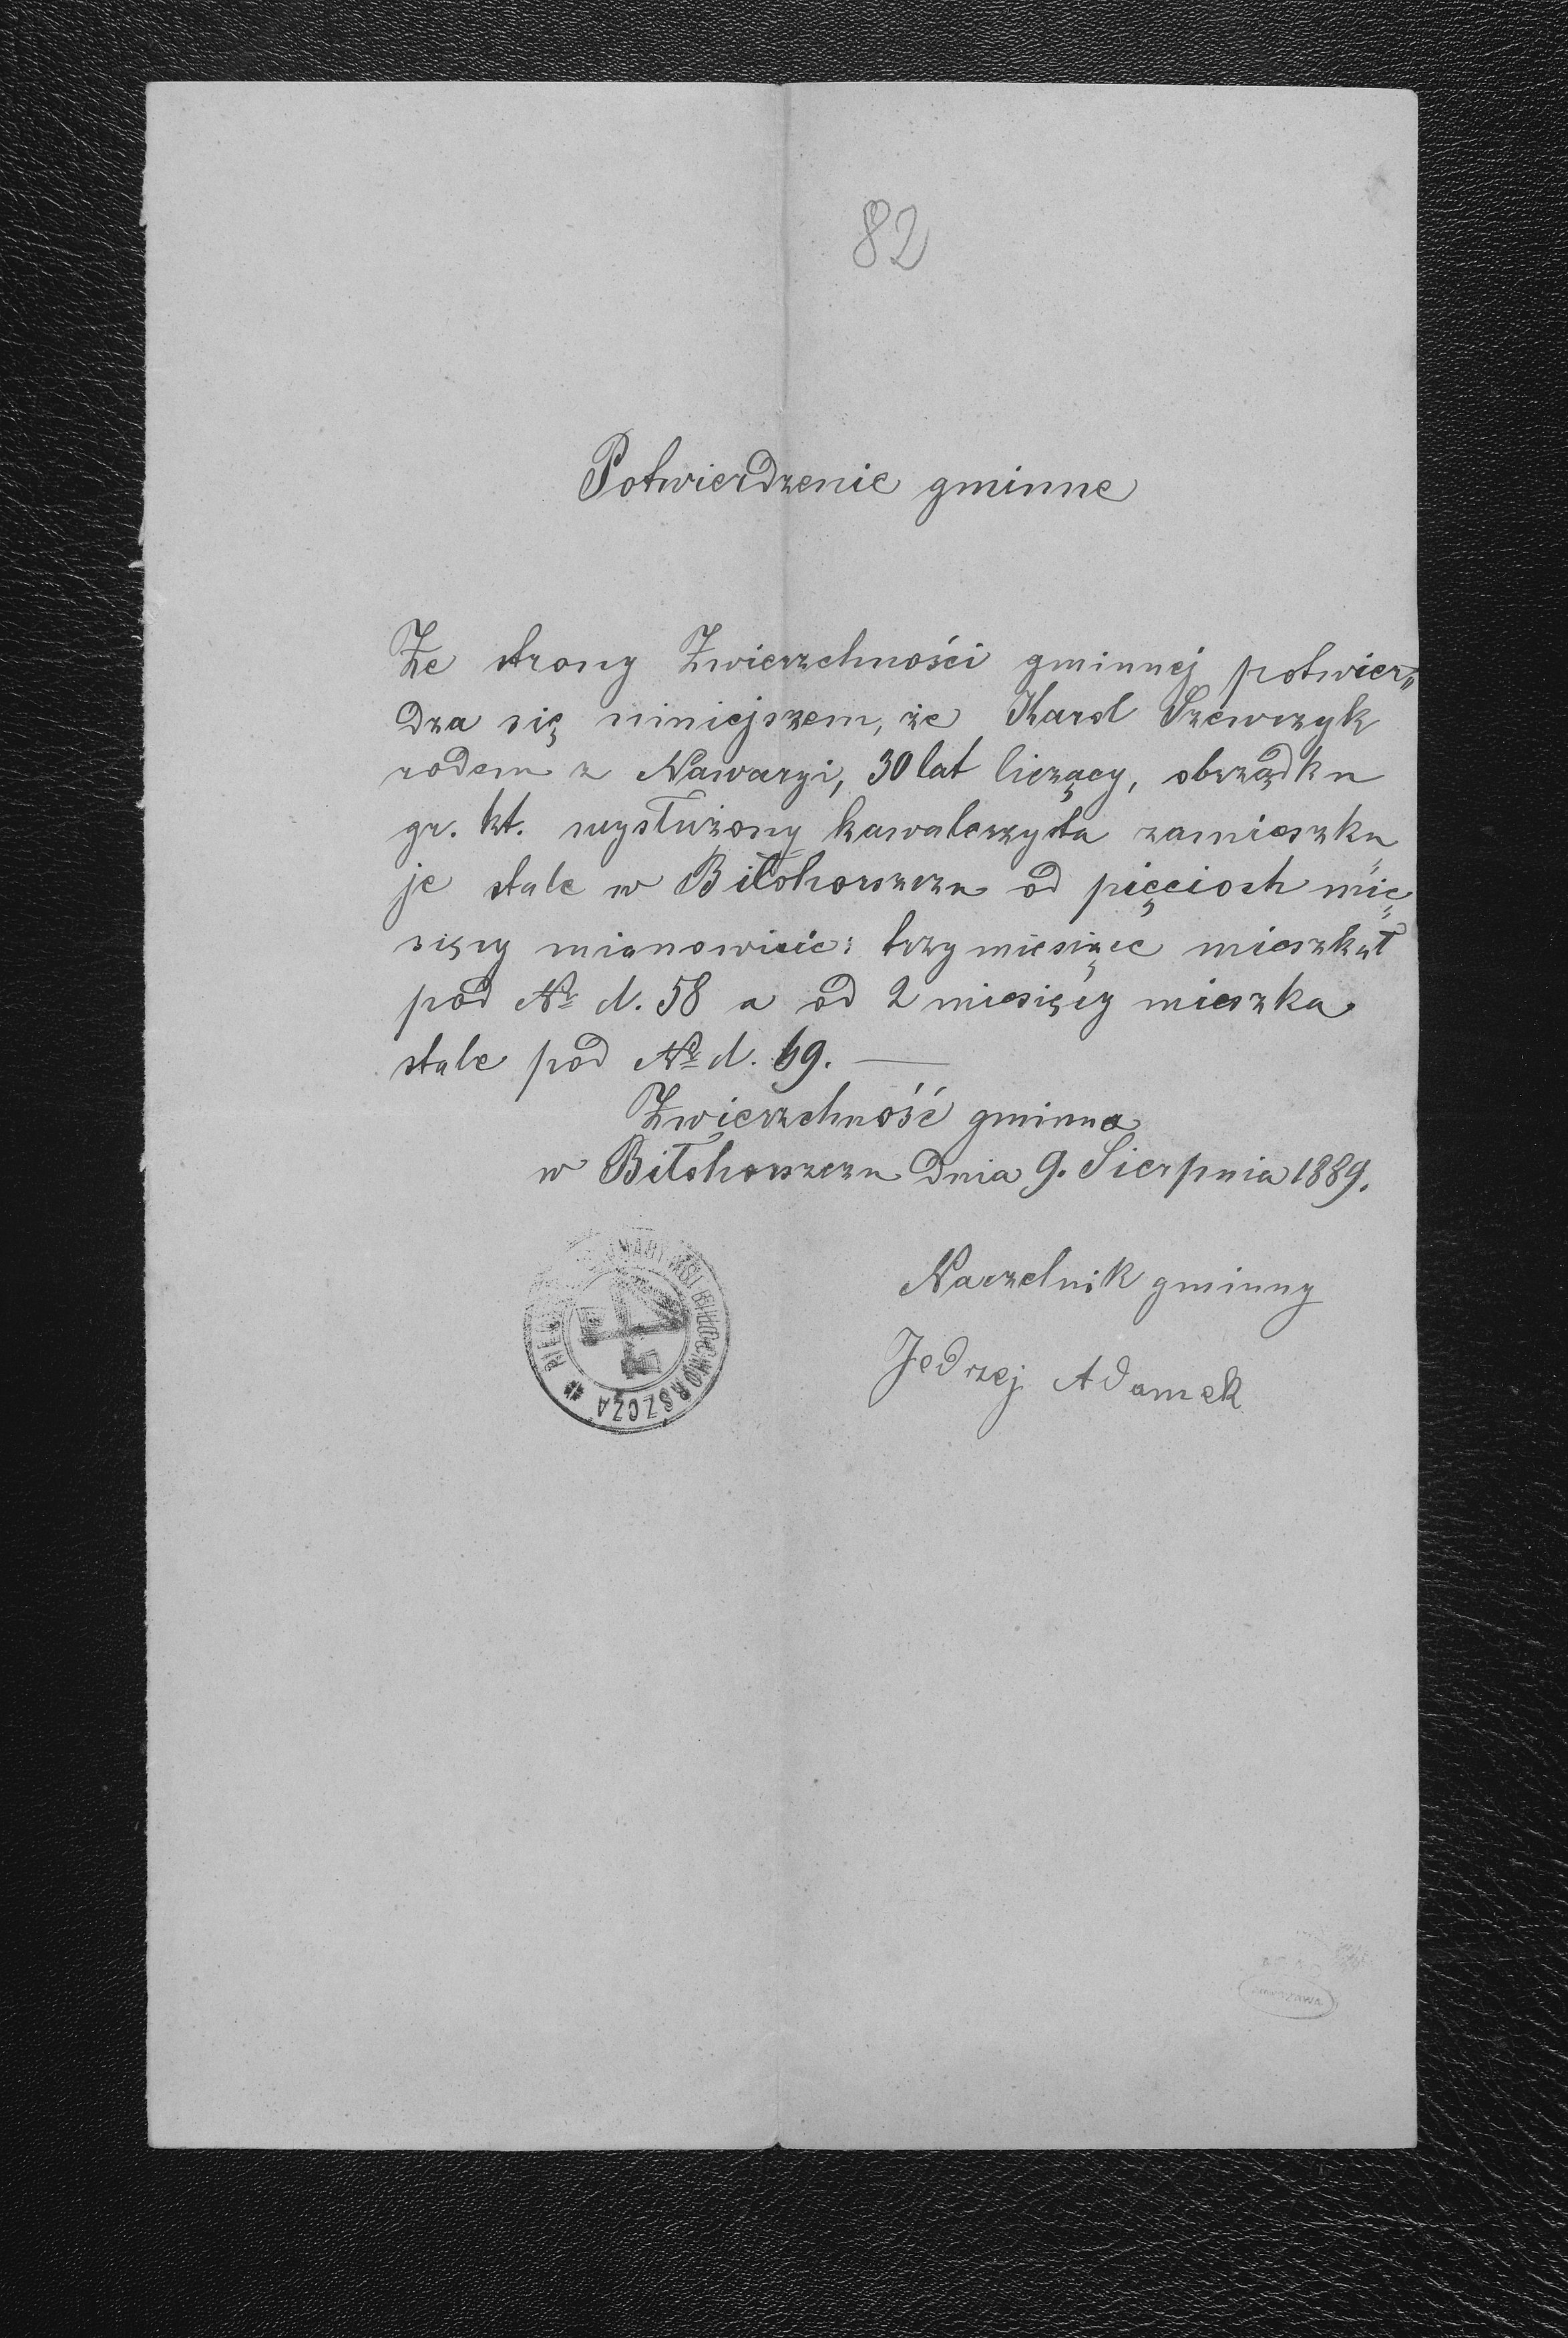 82
Potwierdzenie gminne
Ze strony Zwierzchności gminnej potwier„
dza się niniejszem, że Karol Szewczyk
rodem z Nawaryi, 30 lat liczący, obrządku
gr. kt. wysłużony kawalerzysta zamieszku
je stale w Biłohorszczu od pięcioch mie„
sięcy mianowicie: trzy miesiące mieszkał
pod No d. 58 a od 2 miesięcy mieszka
stale pod No d. 69. —
Zwierzchność gminna
w Biłohorszczu dnia 9. Sierpnia 1889.
Naczelnik gminny
Jedrzej Adamek
WARSZAWA